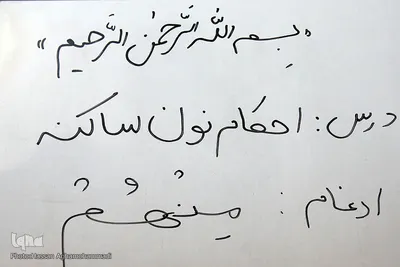 «بِسمِ اللهِ الرَّحمٰنِ الرَّحیمِ»
درس: احکام نون ساکنه
ادغام: مِنْهُمْ
iqna
Photo:Hassan Aghamohammadi